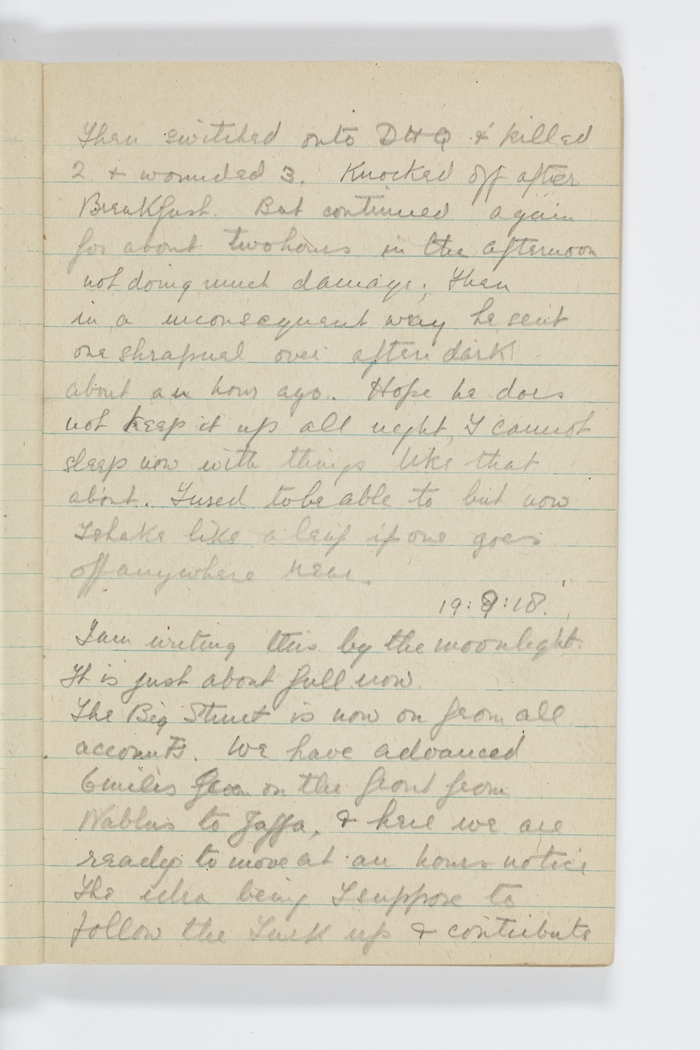 Then switched onto DHQ & killed
2 + wounded 3. Knocked off after
Breakfast. But continued again
for about two hours in the afternoon
not doing much damage; then
in a inconsequent way he sent
one shrapnal over after dark
about an hour ago. Hope he does
not keep it up all night, I cannot
sleep now with things like that
about. I used to be able to but now
I shake like a leaf if one goes
off anywhere near.
19:9:18.
I am writing this by the moonlight.
It is just about full now.
The Big Stunt is now on from all
accounts. We have advanced
6 miles on the front from
Nablus to Jaffa, & here we are
ready to move at an hours notice
The idea being I suppose to
follow the Turk up & contribute